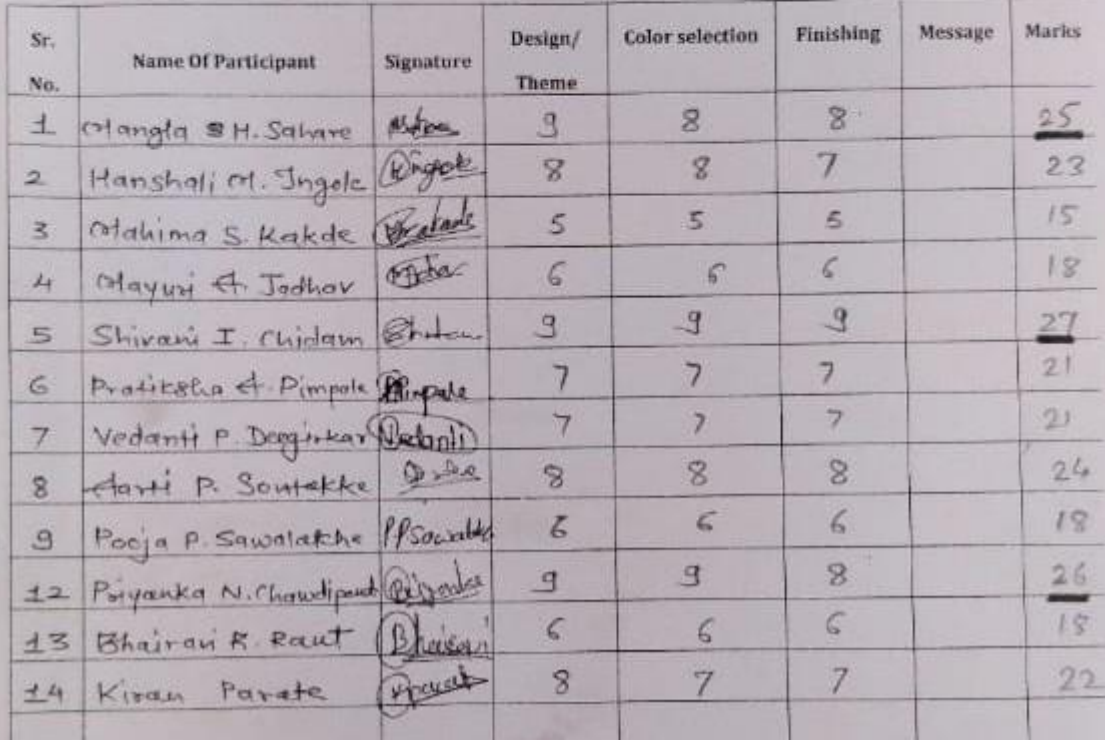 Sr. No. Name Of Participant Signature Design/ Theme Color selection Finishing Message Marks
1 Mangla H. Sahare 9 8 8 25
2 Hanshali M. Ingole Ingole 8 8 7 23
3 Mahima S. Kakde 5 5 5 15
4 Mayuri A. Jadhav 6 6 6 18
5 Shivani I. Chidam 9 9 9 27
6 Pratiksha A. Pimpale Pimpale 7 7 7 21
7 Vedanti P. Deogirkar Vedanti 7 7 7 21
8 Aarti P. Sontakke 8 8 8 24
9 Pooja P. Sawalakhe 6 6 6 18
12 Priyanka N. Priyanka 9 9 8 26
13 Bhairavi R. Raut Bhairavi 6 6 6 18
14 Kiran Parate 8 7 7 22